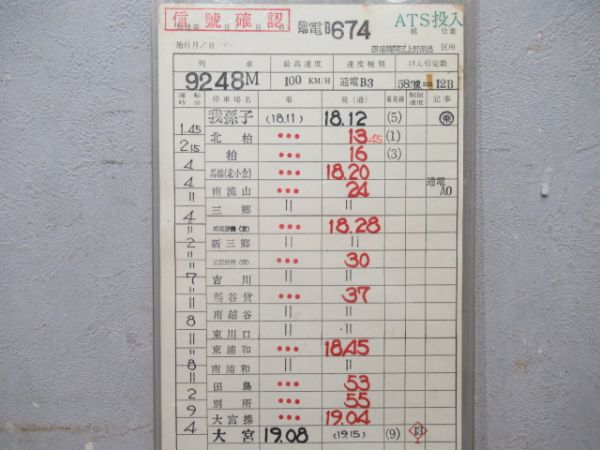 信號確認
臨電B674
ATS投入
仕業
施行月/日
区所
列車
最高速度
速度種別
けん引定数
9248M
100 KM/H
通電B3
12B
運転時分
停車場名
着
発(通)
着発線
制限速度
記事
我孫子 (18.11) 18.12 (5)
1.45
北柏 ••• 13 45 (1)
2 15
柏 ••• 16 (3)
4
馬橋(北小金) ••• 18.20
4
南流山 ••• 24
通電A0
〃
三郷 || ||
4
••• 18.28
〃
新三郷 || ||
2
••• 30
〃
吉川 || ||
7
越谷貨 ••• 37
〃
南越谷 || ||
8
東川口 || ||
〃
東浦和 ••• 18.45
〃
南浦和 || ||
8
田島 ••• 53
2
別所 ••• 55
9
大宮操 ••• 19.04
4
大宮 19.08 (19.15) (9) 13